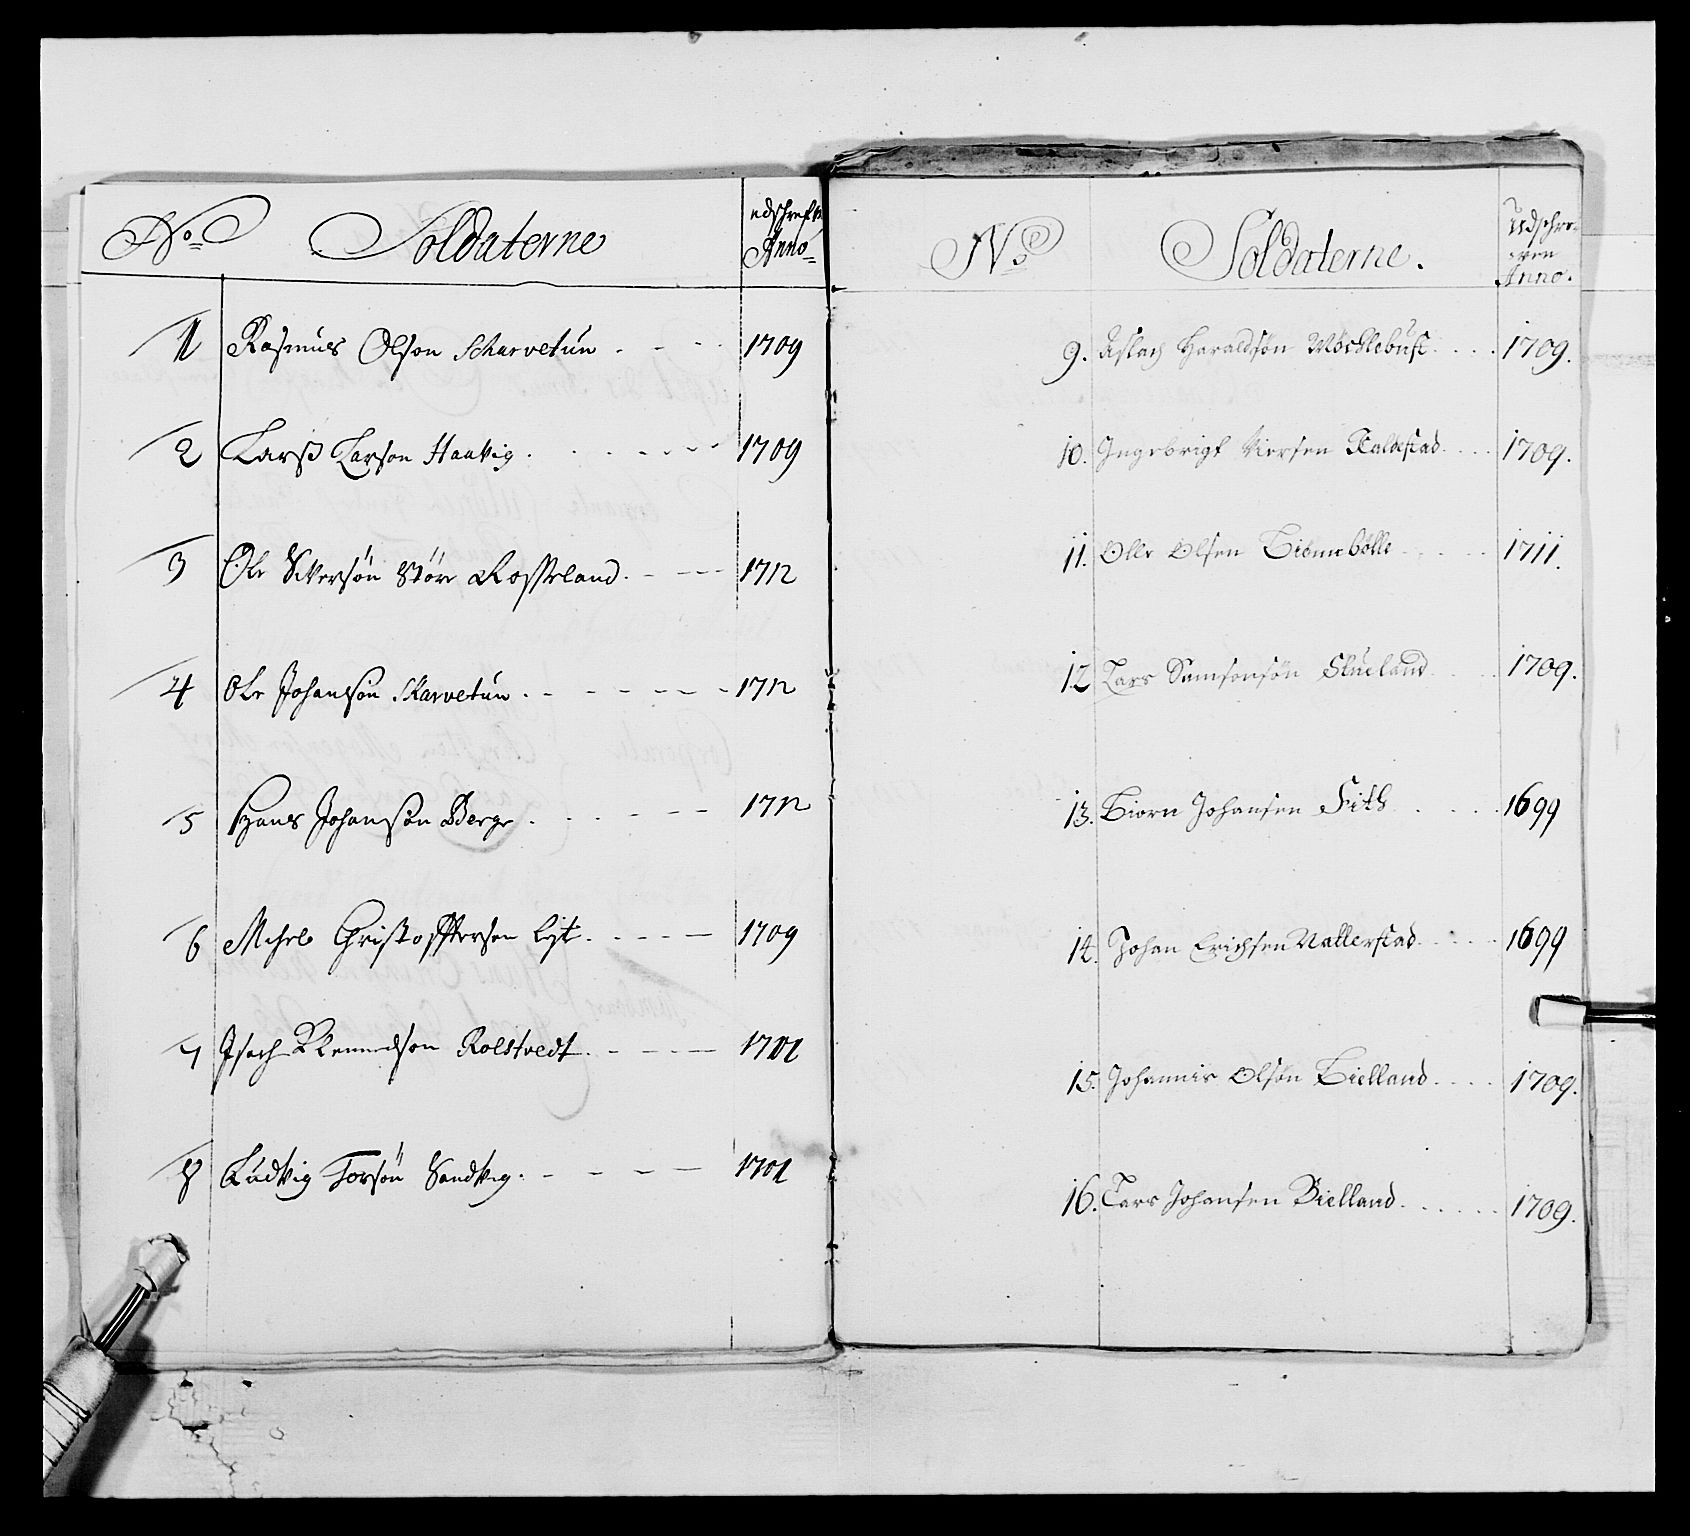 No Soldaterne udschrefne
Anno
1 Rasmus Olson Scharvetun 1709
2 Larss Larson Haavig 1709
3 Ole Siversøn Støre Rosseland 1712
4 Ole Johanssøn Skarvetun 1712
5 Hans Johansøn Berge 1712
6 Michel Christoffersen 1709
7 Isach Rolstvedt 1701
8 Ludvig Torsøn Sandvig 1701
No Soldaterne. Udschre-
ven
Anno.
9. Aslach Haraldsøn 1709.
10. Ingebrigt Iversen 1709.
11. Olle Olsen 1711.
12 Lars Samsonsøn Skueland 1709.
13. Biorn Johansen Fith 1699
14. Johan Erichsen Nallerstad 1699
15. Johannis Olsøn Bielland 1709.
16. Lars Johansen Bielland 1709.